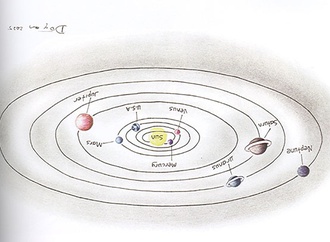 Jupiter
U.S.A
Venus
Saturn
Sun
Mars
Mercury
Uranus
Neptune